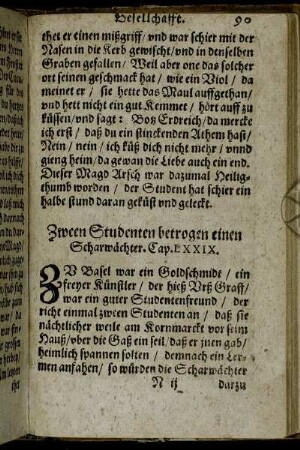 Gesellschafft. 90
thet er einen mißgriff / vnd war schier mit der
Nasen in die Kerb gewischt / vnd in denselben
Graben gefallen / Weil aber one das solcher
ort seinen geschmack hat / wie ein Viol / da
meinet er / sie hette das Maul auffgethan /
vnd hett nicht ein gut Kemmet / hört auff zu
küssen / vnd sagt: Botz Erdreich / da mercke
ich erst / daß du ein stinckenden Athem hast /
Nein / nein / ich küß dich nicht mehr / vnnd
gieng hiem / da gewan die Liebe auch ein end.
Dieser Magd Arsch war dazumal Heilig-
thumb worden / der Student hat schier ein
halbe stund daran geküst vnd geleckt.
Zween Studenten betrogen einen
Scharwächter. Cap. LXXIX.
ZV Basel war ein Goldschmide / ein
freyer Künstler / der hieß Vrß Graff /
war ein guter Studentenfreund / der
richt einmal zween Studenten an / daß sie
nächtlicher weile am Kornmarckt vor seim
Hauß / vber die Gaß ein seil / daß er jnen gab /
heimlich spannen solten / demnach ein Ler-
men anfahen / so würden die Scharwächter
N ij darzu